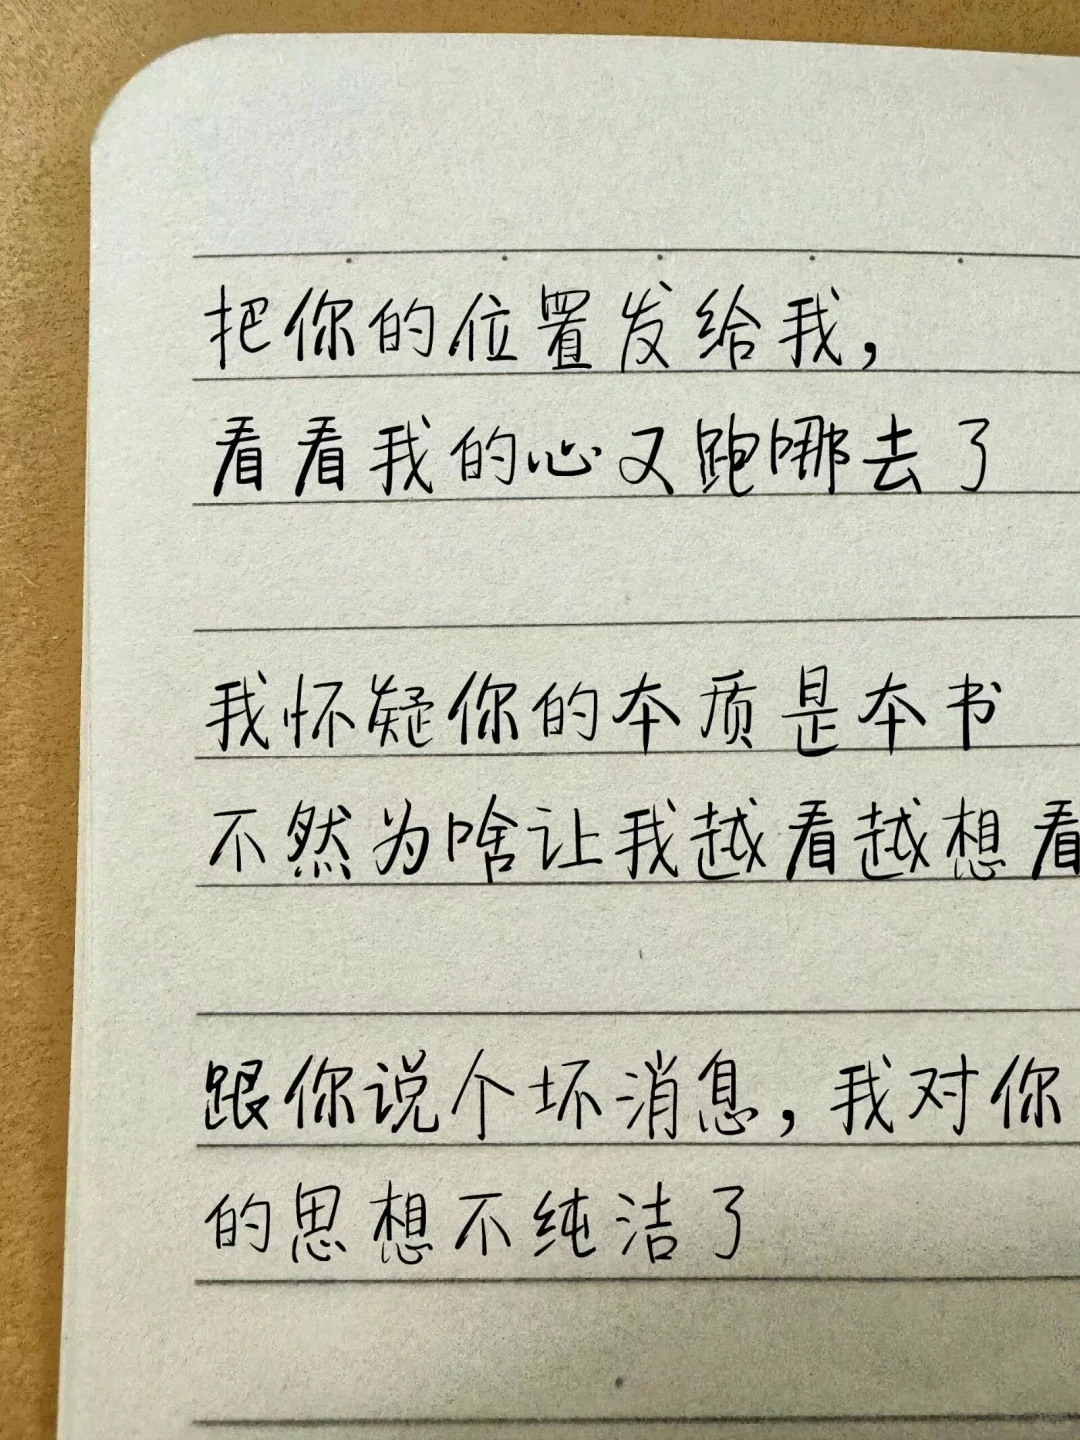 把你的位置发给我，
看看我的心又跑哪去了
我怀疑你的本质是本书
不然为啥让我越看越想看
跟你说个坏消息，我对你
的思想不纯洁了